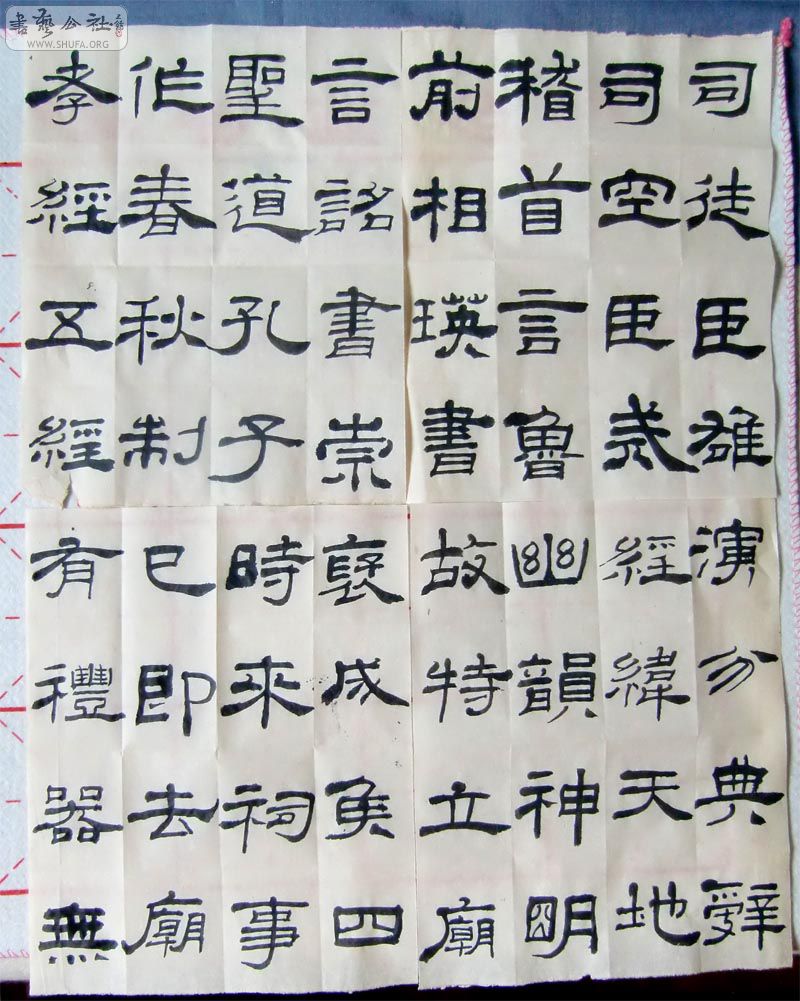 司徒臣雄
司空臣戒
稽首言魯
前相瑛書
言詔書崇
聖道孔子
作春秋制
孝經五經
演分典辭
經緯天地
幽韻神明
故特立廟
褒成侯四
時來祠事
已即去廟
有禮器無
書藝公社
WWW.SHUFA.ORG